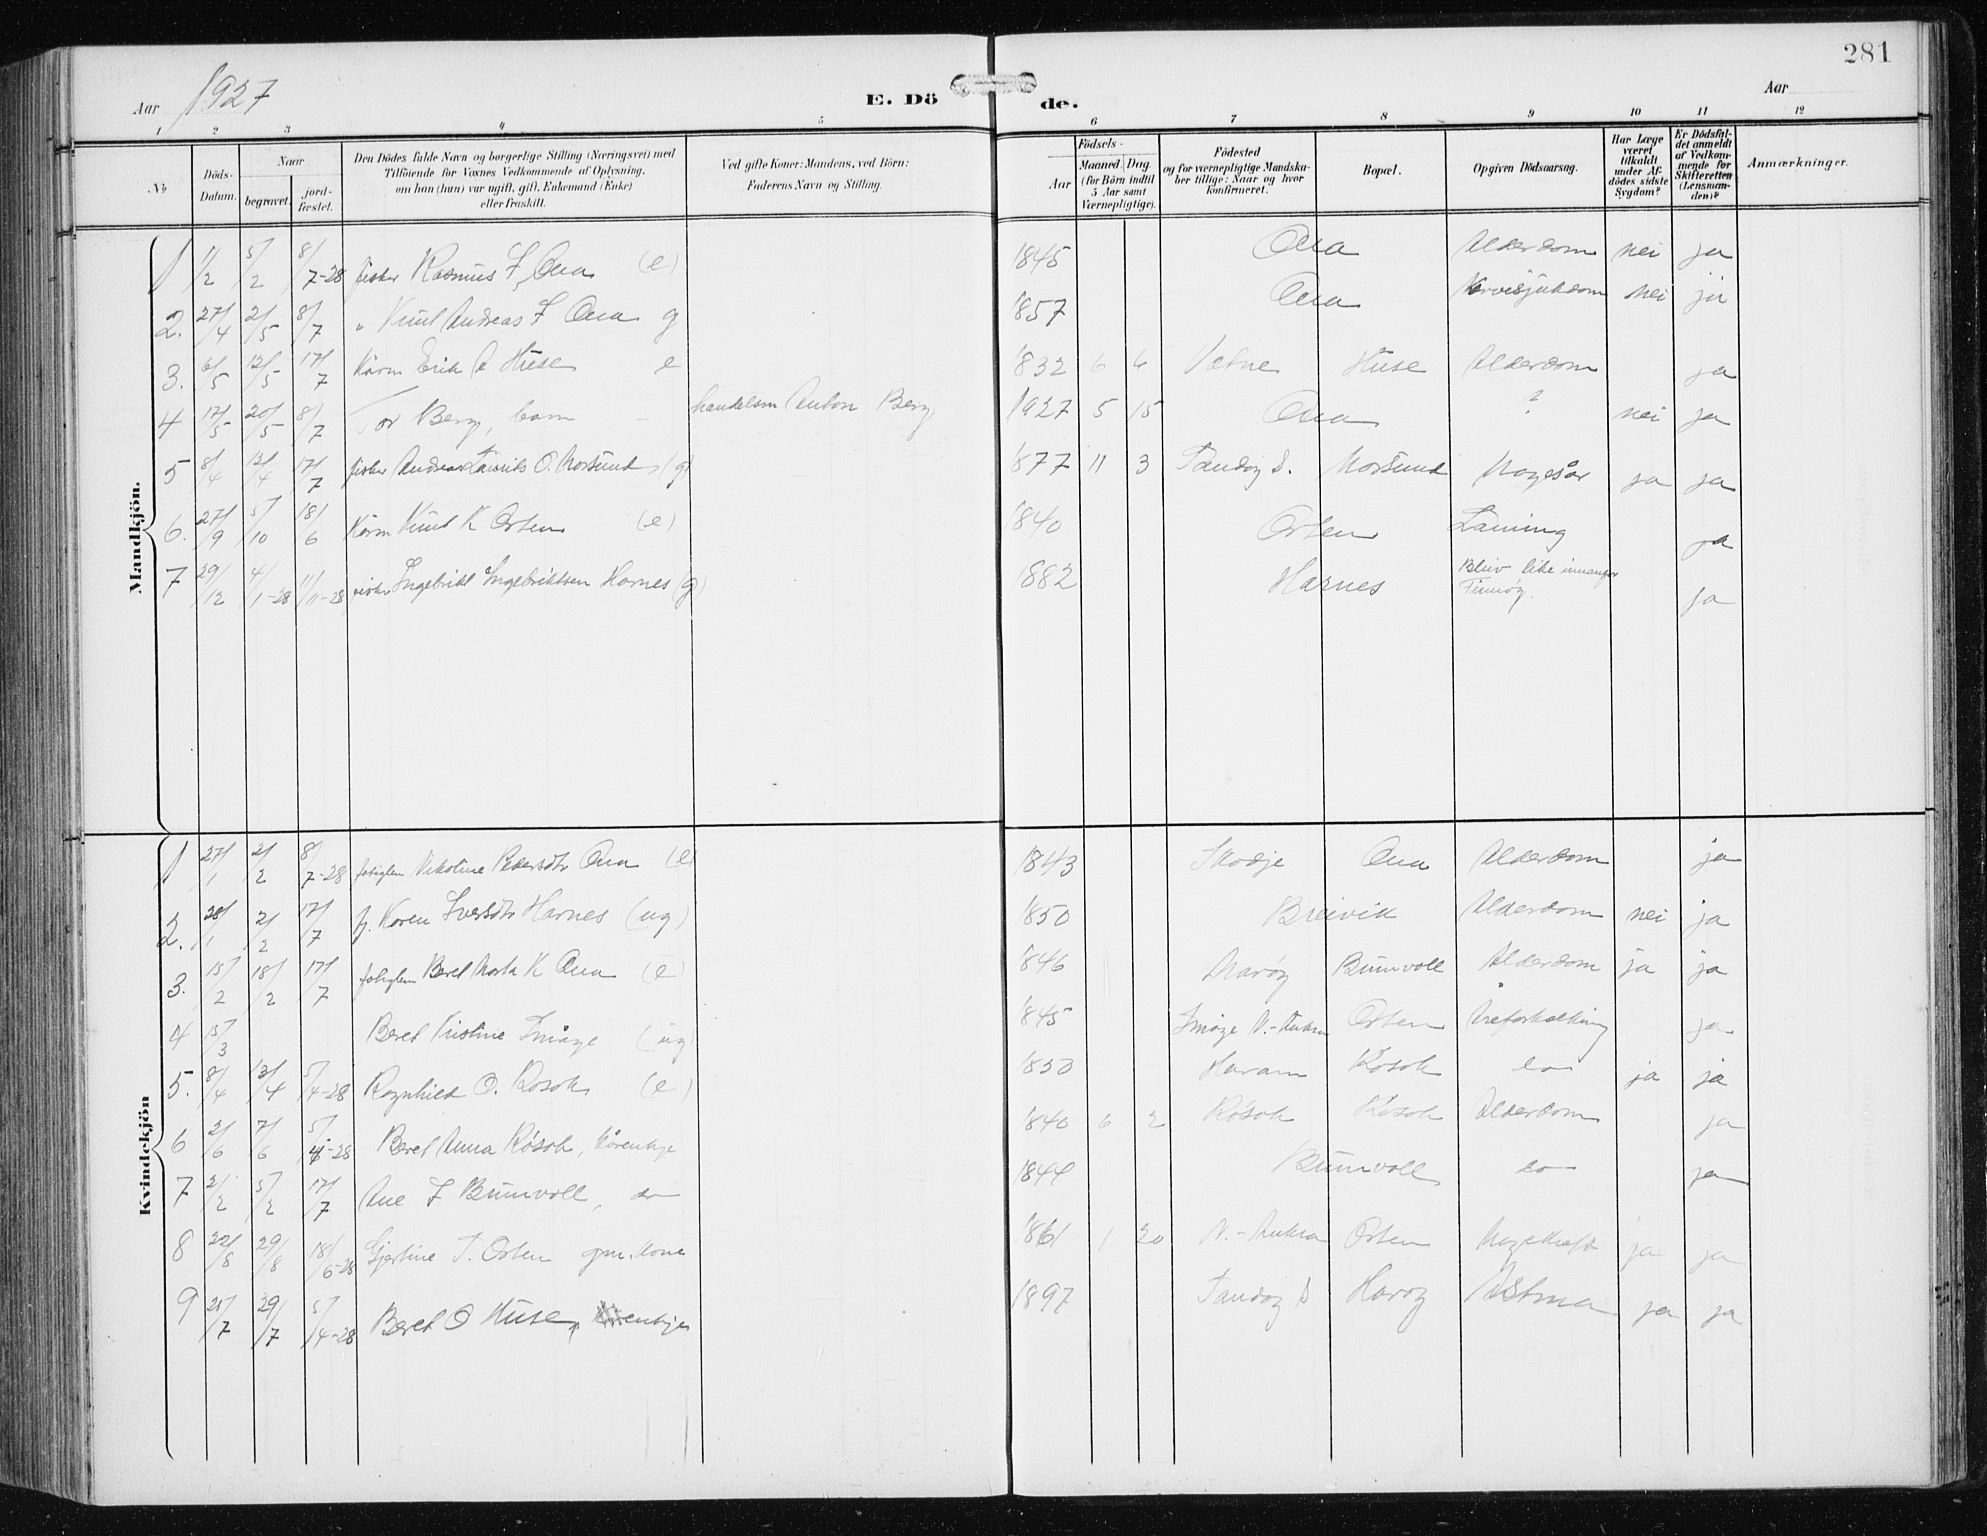 281
Aar 1927
E. Dö
de.
Aar
1 2 3 4 5 6 7 8 9 10 11 12
No
Döds-Datum.
Naar
begravet.
jord-fæstet.
Den Dödes fulde Navn og borgerlige Stilling (Næringsvei) med
Tilföiende for Voxnes Vedkommende af Oplysning,
om han (hun) var ugift, gift, Enkemand (Enke)
eller fraskilt.
Ved gifte Koner: Mandens, ved Börn:
Faderens Navn og Stilling.
Födsels-
Aar
Maaned. Dag.
(for Börn indtil
5 Aar samt
Værnepligtige).
Födested
og for værnepligtige Mandska-
ber tillige: Naar og hvor
konfirmeret.
Bopæl.
Opgiven Dödsaarsag.
Har Læge
været
tilkaldt
under Af-
dödes sidste
Sygdom?
Er Dödsfal-
det anmeldt
af Vedkom-
mende for
Skifteretten
(Lensman-
den)?
Anmærkninger.
Mandkjön.
1 1/2 5/2 8/7-28 fisker Rasmus J. Ona (e) 1845 Ona Alderdom nei ja
2. 27/4 2/5 8/7 " Knut Andreas J Ona g 1857 Ona nei ja
3. 6/5 12/5 17/7 Kårm Erik A Huse e 1832 6 6 Vatne Huse Alderdom ja
4 17/5 20/5 8/7 Tor Berg, barn – handelsm Anton Berg, 1927 5 15 Ona ? nei ja
5 8/4 13/4 17/7 fisker Andreas Laurits O. Morsund (g) 1877 11 3 Sandøy S. Morsund Magesår ja ja
6. 27/9 5/10 18/6 Kårm Knut K Orten (e) 1840 Orten Laming ja
7 29/12 4/1-28 11/11-28 fisker Ingebrikt Ingebriktsen Harnes (g) 1882 Harnes Bleiv like innanfor
Finnøy. ja
Kvindekjön
1 27/1 2/2 8/7-28 Nikoline Pedersdtr Ona (e) 1843 Skodje Ona Alderdom ja
2. 28/1 2/2 17/7 Karen Iversdtr Harnes (ug) 1850 Breivik Alderdom nei ja
3. 15/2 18/2 17/7 Beret Marta K Ona (e) 1846 Harøy Bumvoll Alderdom ja ja
4 15/3 Beret Kristine Småge (ug) 1845 Småge N.-Aukra Orten Åreforkalking ja
5. 8/4 13/4 5/4-28 Ragnhild O. Røsok (e) 1850 Haram Røsok do ja ja
6 2/6 7/6 5/4-28 Beret Anna Røsok, kårenkje 1840 6 2 Røsok Røsok Alderdom ja
7 2/2 5/2 17/7 Ane J Bumvoll, do 1844 Bumvoll do ja
8 22/8 29/8 18/6-28 Gjertine T. Orten gm. kone 1861 1 20 N.-Aukra Orten Magekreft ja ja
9 25/7 29/7 5/4-28 Beret O Huse, 1897 Sandøy S Harøy Astma ja ja